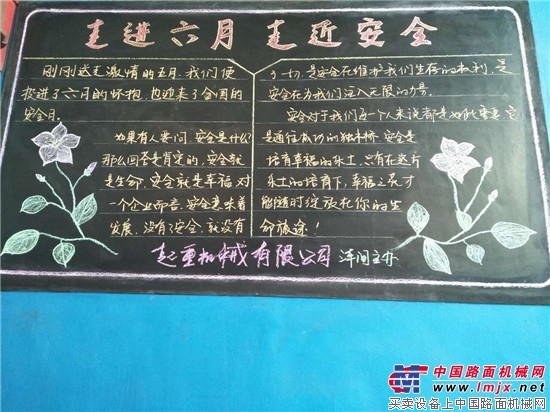 走进六月 走近安全
刚刚送走激情的五月,我们便
投进了六月的怀抱,也迎来了全国的
安全月。
如果有人要问,安全是什么?
那么回答是肯定的,安全就
是生命,安全就是幸福,对
一个企业而言,安全意味着
发展,没有了安全,就没有
了一切,是安全在维护我们生存的权利,是
安全在为我们注入无限的力量。
安全对于我们每一个人来说都是如此重要,它
是通往成功的独木桥,安全是
培育幸福的乐土,只有在这片
乐土的培育下,幸福之花才
能随时绽放在你的生
命旅途!
起重机械有限公司 洋间主办
中国路面机械网
www.lmjx.net
买卖设备上中国路面机械网